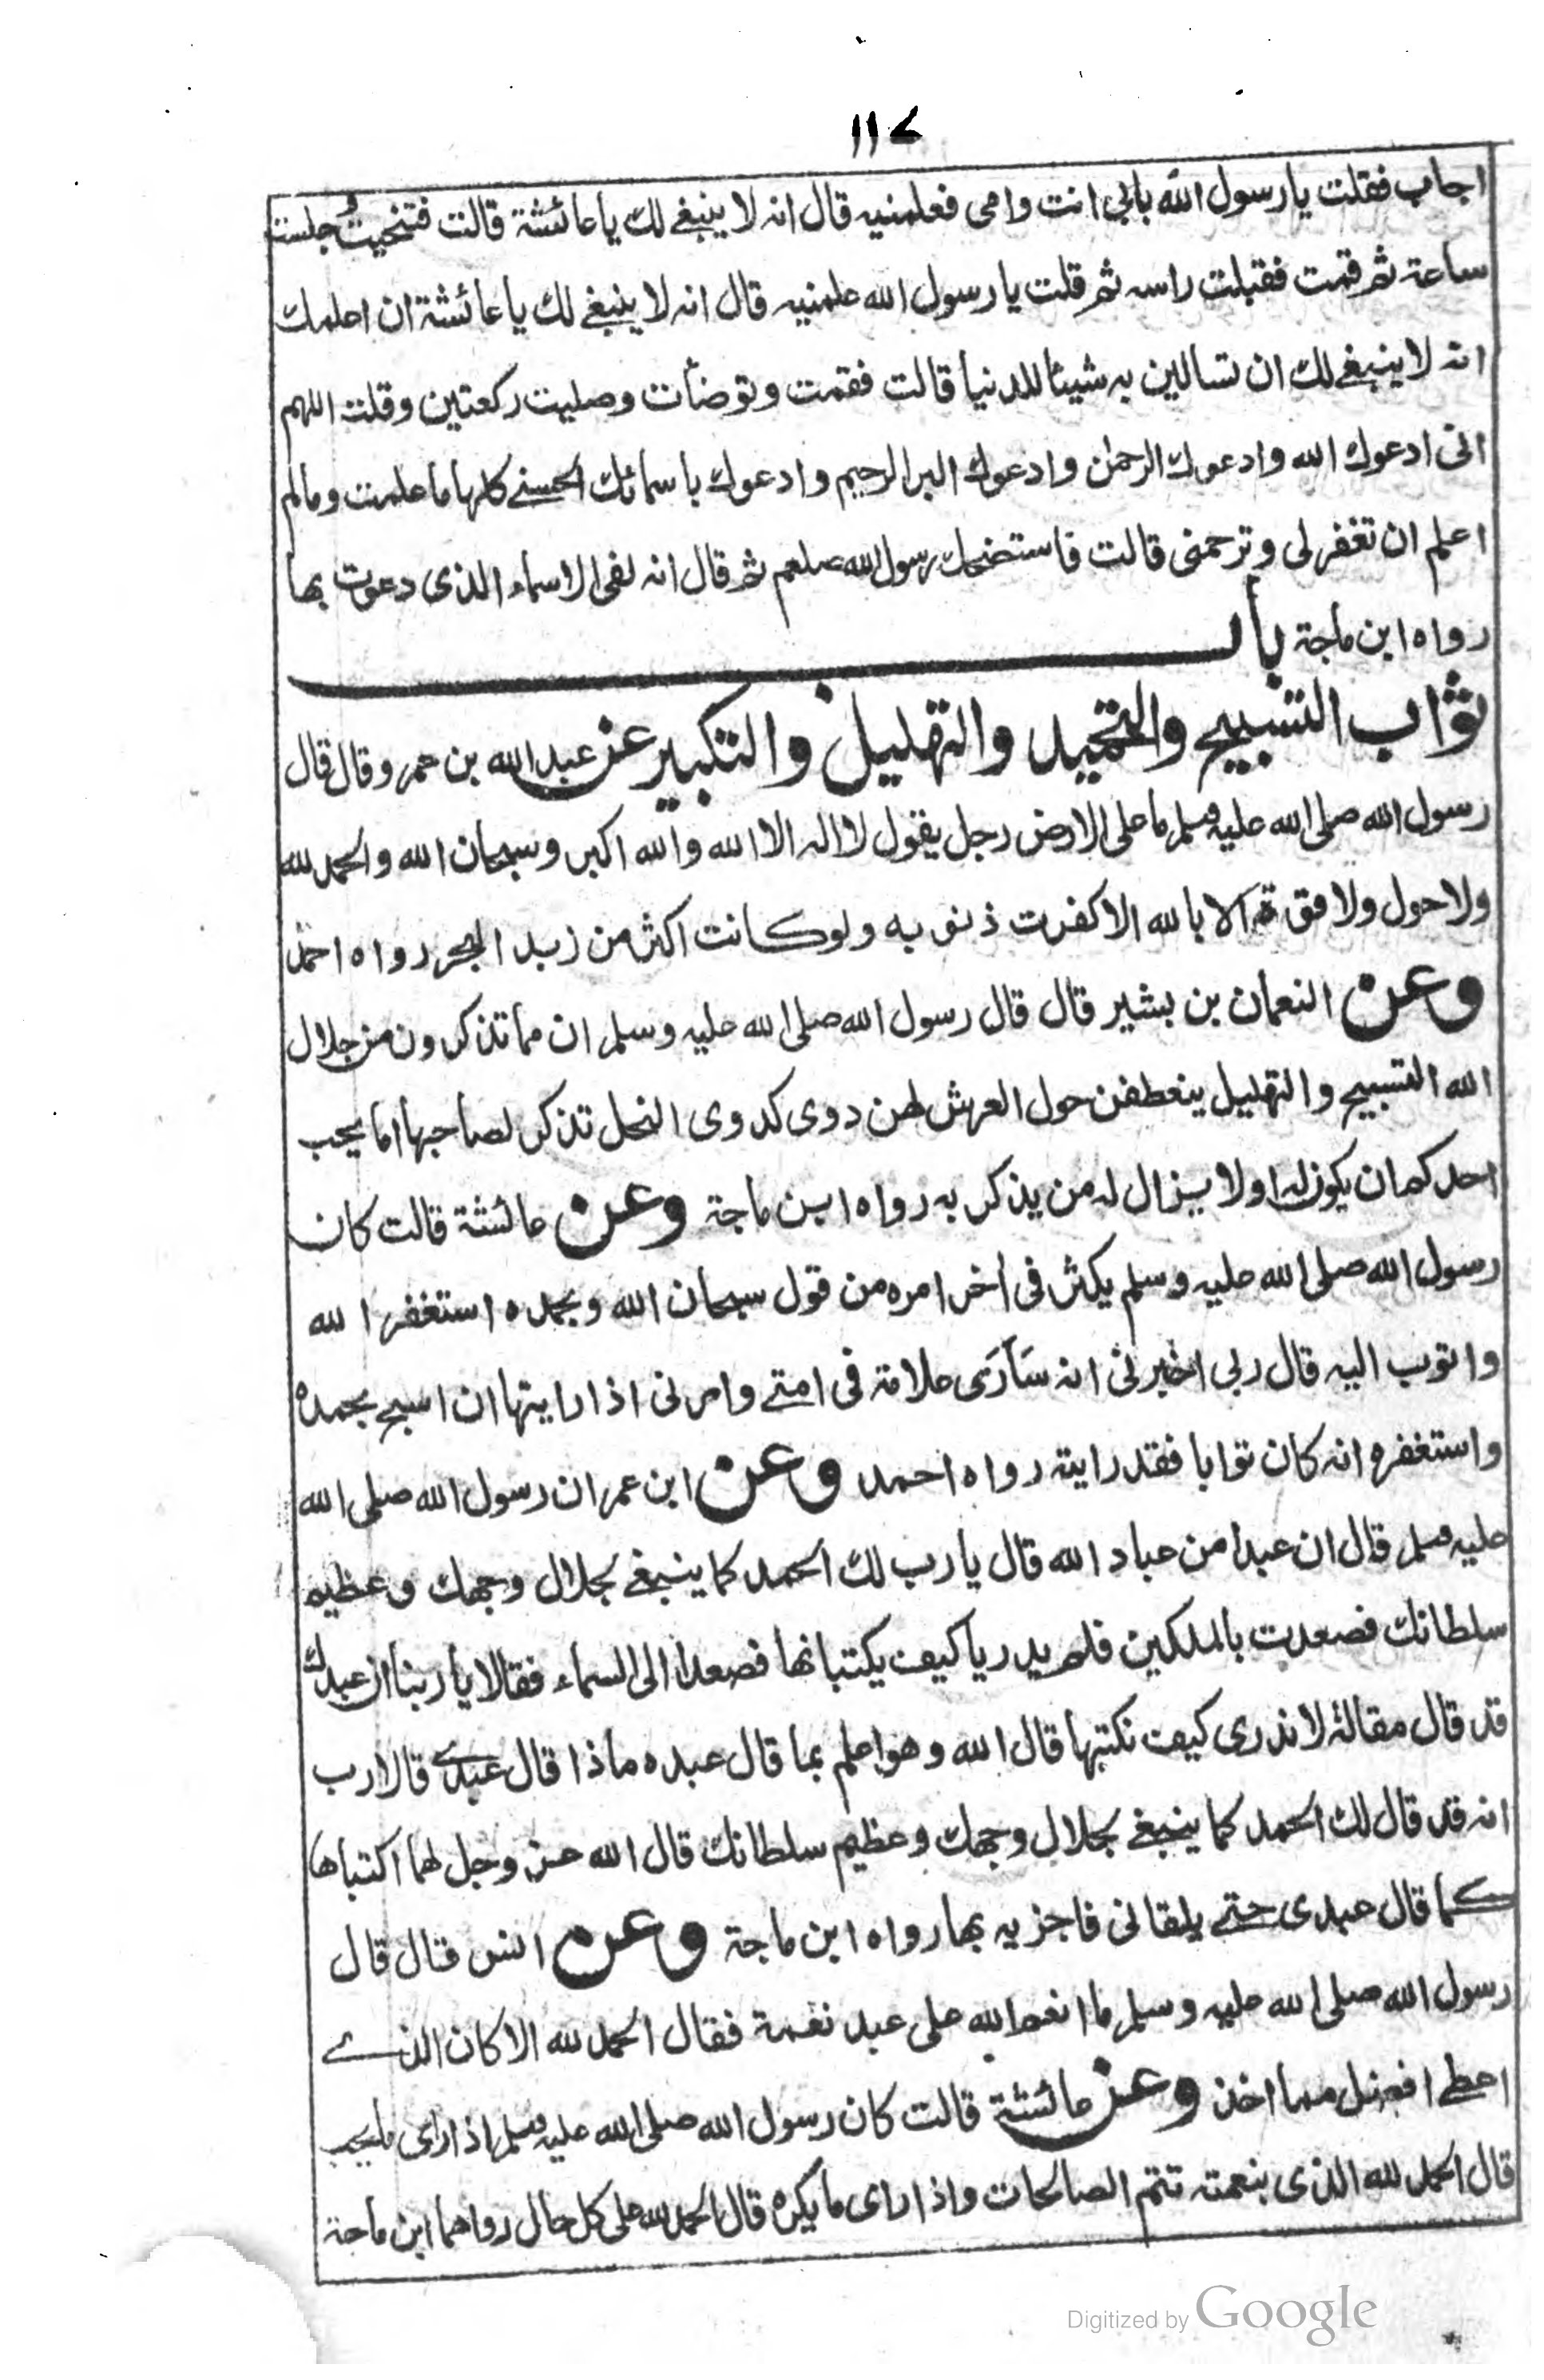 ١١٧
اجاب فقلت يا رسول الله بابي انت وامى فعلمنيه قال انه لا ينبغى لك يا عائشة قالت فتنحيت وجلست
ساعة ثم قمت فقبلت راسه ثم قلت يا رسول الله علمنيه قال انه لا ينبغى لك يا عائشة ان اعلمك
انه لا ينبغى لك ان تسالين به شيئا للدنيا قالت فقمت وتوضأت وصليت ركعتين وقلت اللهم
انى ادعوك الله وادعوك الرحمن وادعوك البر الرحيم وادعوك باسمائك الحسنى كلها ما علمت ومالم
اعلم ان تغفر لى وترحمنى قالت فاستضحك رسول الله صلعم ثم قال انه لفى الاسماء الذى دعوت بها
رواه ابن ماجة باب
ثواب التسبيح والتحميد والتهليل والتكبير عن عبد الله بن عمرو قال قال
رسول الله صلى الله عليه وسلم ما على الارض رجل يقول لا اله الا الله والله اكبر وسبحان الله والحمد لله
ولا حول ولا قوة الا بالله الا كفرت ذنوبه ولو كانت اكثر من زبد البحر رواه احمد
وعن النعمان بن بشير قال قال رسول الله صلى الله عليه وسلم ان مما تذكرون من جلال
الله التسبيح والتهليل ينعطفن حول العرش لهن دوى كدوى النحل تذكر لصاحبها اما يحب
احدكم ان يكون له اولا يزال له من يذكر به رواه ابن ماجة وعن عائشة قالت كان
رسول الله صلى الله عليه وسلم يكثر فى أخر امره من قول سبحان الله وبحمده استغفر الله
واتوب اليه قال ربى اخبرنى انه سَاَرَى علامة فى امتى وامرنى اذا رايتها ان اسبح بحمده
واستغفره انه كان توابا فقد رايته رواه احمد وعن ابن عمر ان رسول الله صلى الله
عليه وسلم قال ان عبدا من عباد الله قال يا رب لك الحمد كما ينبغى لجلال وجهك وعظيم
سلطانك فصعدت بالملكين فلم يدريا كيف يكتبانها فصعدا الى السماء فقالا يا ربنا ان عبدك
قد قال مقالة لا ندرى كيف نكتبها قال الله وهو اعلم بما قال عبده ماذا قال عبدى قالا رب
انه قد قال لك الحمد كما ينبغى لجلال وجهك وعظيم سلطانك قال الله عز وجل لهما اكتباها
كما قال عبدى حتى يلقانى فاجزيه بها رواه ابن ماجة وعن انس قال قال
رسول الله صلى الله عليه وسلم ما انعم الله على عبد نعمة فقال الحمد لله الا كان الذى
اعطى افضل مما اخذ وعن عائشة قالت كان رسول الله صلى الله عليه وسلم اذا راى ما يحب
قال الحمد لله الذى بنعمته تتم الصالحات واذا راى ما يكره قال الحمد لله على كل حال رواهما ابن ماجة
Digitized by Google